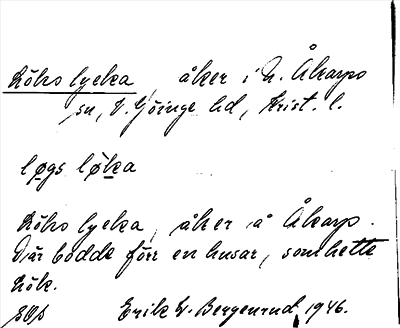 Löks lycka, åker i N. Åkarps
sn, V. Göinge hd, Krist. l.
løgs løka
Löks lycka, åker å Åkarp.
Där bodde förr en husar, som hette
Lök.
Erik W. Bergenrud, 1946.